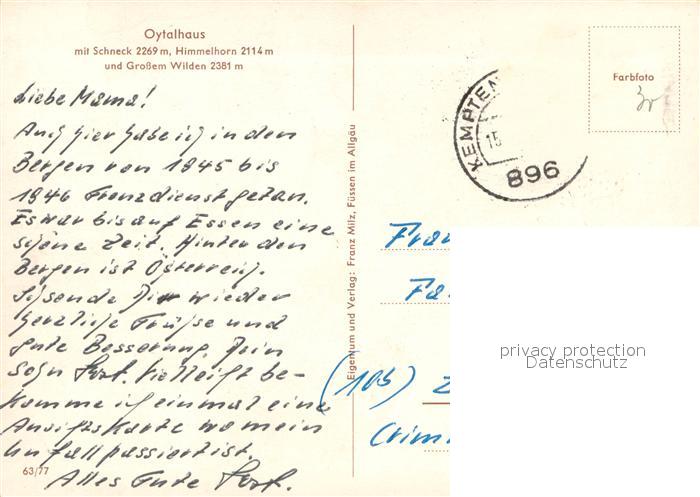 Oytalhaus
mit Schneck 2269 m, Himmelhorn 2114 m
und Großem Wilden 2381 m
Liebe Mama!
Auch hier habe ich in den
Bergen von 1945 bis
1946 Grenzdienst getan.
Es war bis auf Essen eine
schöne Zeit. Hinter den
Bergen ist Österreich.
Ich sende Dir wieder
herzliche Grüße und
gute Besserung Dein
Sohn Vielleicht be-
komme ich einmal eine
Ansichtskarte wo mein
Unfall passiert ist.
Alles Gute
63/77
Eigentum und Verlag: Franz Milz, Füssen im Allgäu
Farbfoto
KEMPTEN
15
896
Frau
Fa
(10b)
Crim
privacy protection
Datenschutz